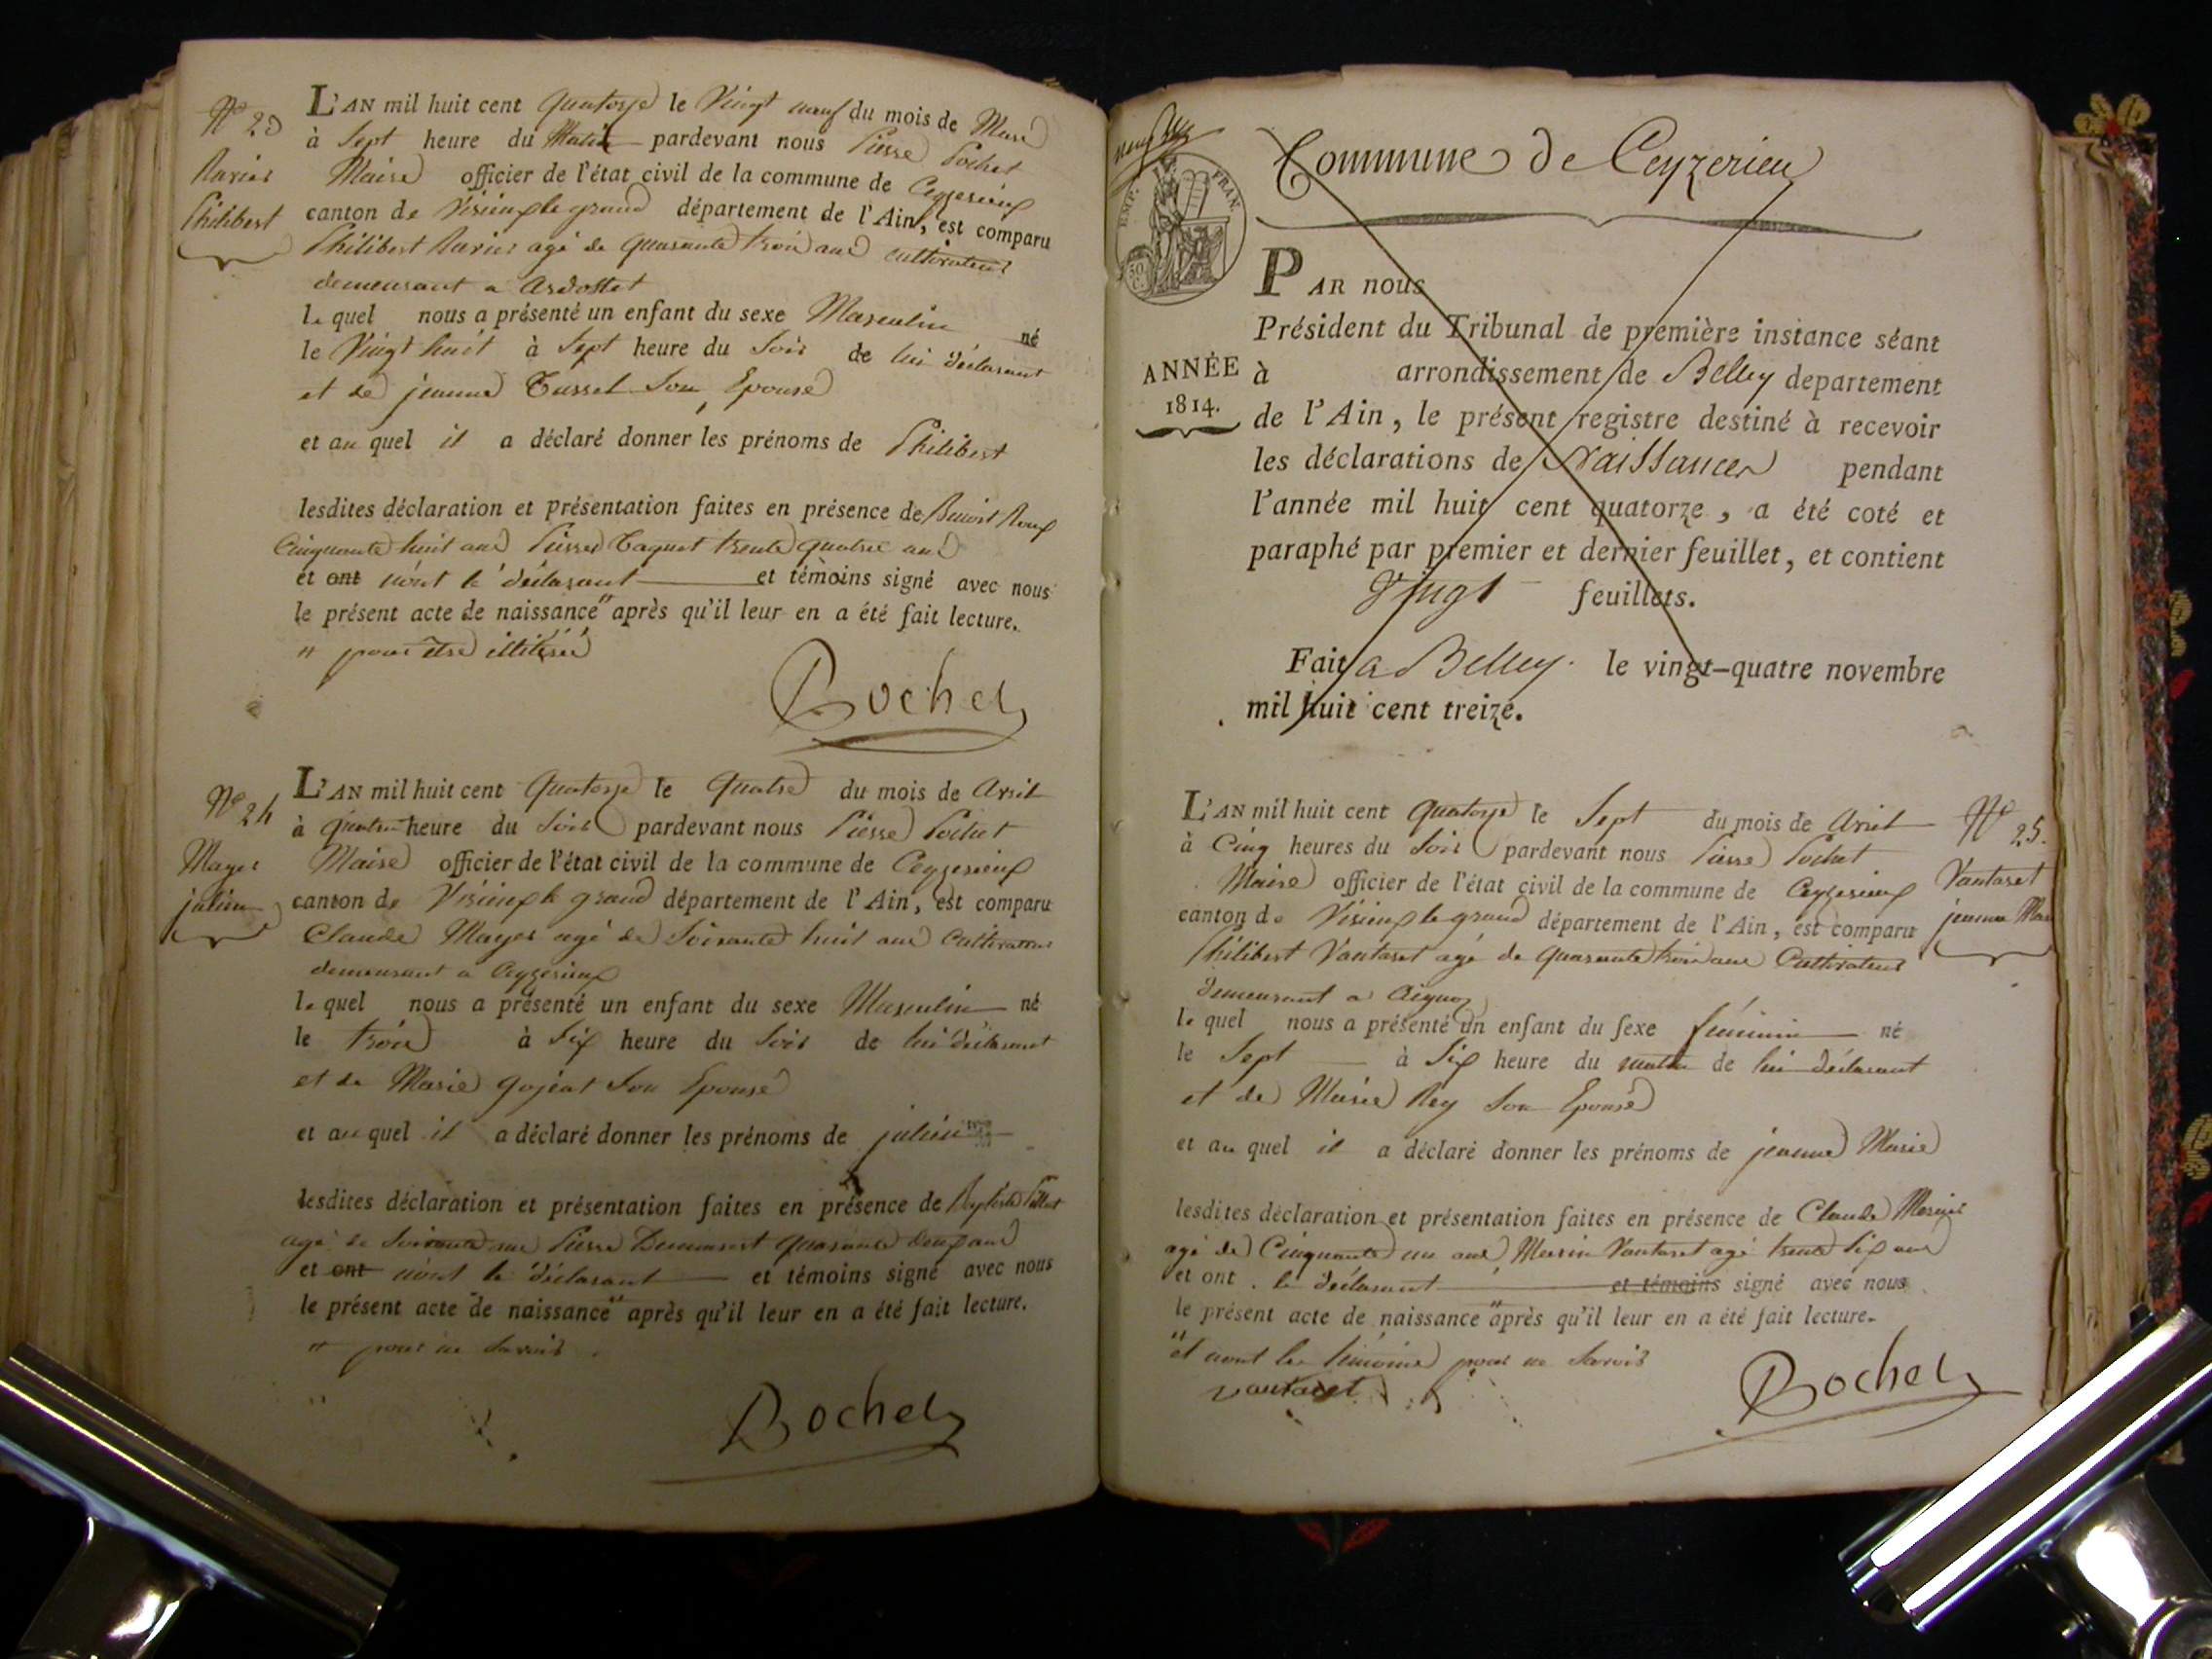 N° 23
Ravier
Philibert
L'AN mil huit cent quatorze le vingt neuf du mois de Mars
à Sept heure du Matin pardevant nous Pierre Pochet
Maire officier de l'état civil de la commune de Ceyzerieux
canton de Virieux le grand département de l'Ain, est comparu
Philibert Ravier agé de quarante trois ans cultivateur
demeurant a Ardosset
le quel nous a présenté un enfant du sexe Masculin né
le Vingt huit à Sept heure du Soir de lui déclarant
et de jeanne Son Epouse
et au quel il a déclaré donner les prénoms de Philibert
lesdites déclaration et présentation faites en présence de Benoit Roux
Cinquante huit ans Pierre Caquet trente quatre ans
et ont n'ont le déclarant et témoins signé avec nous
le présent acte de naissance" après qu'il leur en a été fait lecture.
" pour être illitéré
Bochet
N° 24
Mayer
julien
L'AN mil huit cent Quatorze le Quatre du mois de Avril
à quatre heure du Soir pardevant nous Pierre Pochet
Maire officier de l'état civil de la commune de Ceyzerieux
canton de Virieux le grand département de l'Ain, est comparu
Claude Mayer agé de Soixante huit ans Cultivateur
demeurant a Ceyzerieux
le quel nous a présenté un enfant du sexe Masculin né
le trois à Six heure du Soir de lui déclarant
et de Marie Gojeat Son Epouse
et au quel il a déclaré donner les prénoms de julien
lesdites déclaration et présentation faites en présence de Baptiste Pillet
agé de Soixante ans Pierre quarante deux ans
et ont n'ont le déclarant et témoins signé avec nous
le présent acte de naissance" après qu'il leur en a été fait lecture.
" pour ne Savoir
Bochet
Commune de Ceyzerieu
EMP. FRAN.
30 C.
ANNÉE
1814.
PAR nous
Président du Tribunal de première instance séant
à arrondissement de Belley departement
de l'Ain, le présent registre destiné à recevoir
les déclarations de Naissances pendant
l'année mil huit cent quatorze, a été coté et
paraphé par premier et dernier feuillet, et contient
Vingt feuillets.
Fait a Belley. le vingt-quatre novembre
mil huit cent treize.
N° 25.
Vautaret
jeanne Mar
L'AN mil huit cent Quatorze le Sept du mois de Avril
à Cinq heures du Soir pardevant nous Pierre Pochet
Maire officier de l'état civil de la commune de Ceyzerieux
canton de Virieux le grand département de l'Ain, est comparu
Philibert Vautaret agé de Quarante trois ans Cultivateur
demeurant a Aignoz
le quel nous a présenté un enfant du sexe féminin né
le Sept à Six heure du matin de lui déclarant
et de Marie Rey Son Epouse
et au quel il a déclaré donner les prénoms de jeanne Marie
lesdites déclaration et présentation faites en présence de Claude Mercier
agé de Cinquante un ans Marin Vautaret agé trente Six ans
et ont le déclarant et témoins signé avec nous
le présent acte de naissance" après qu'il leur en a été fait lecture.
" et n'ont les témoins pour ne Savoir
vautaret
Bochet